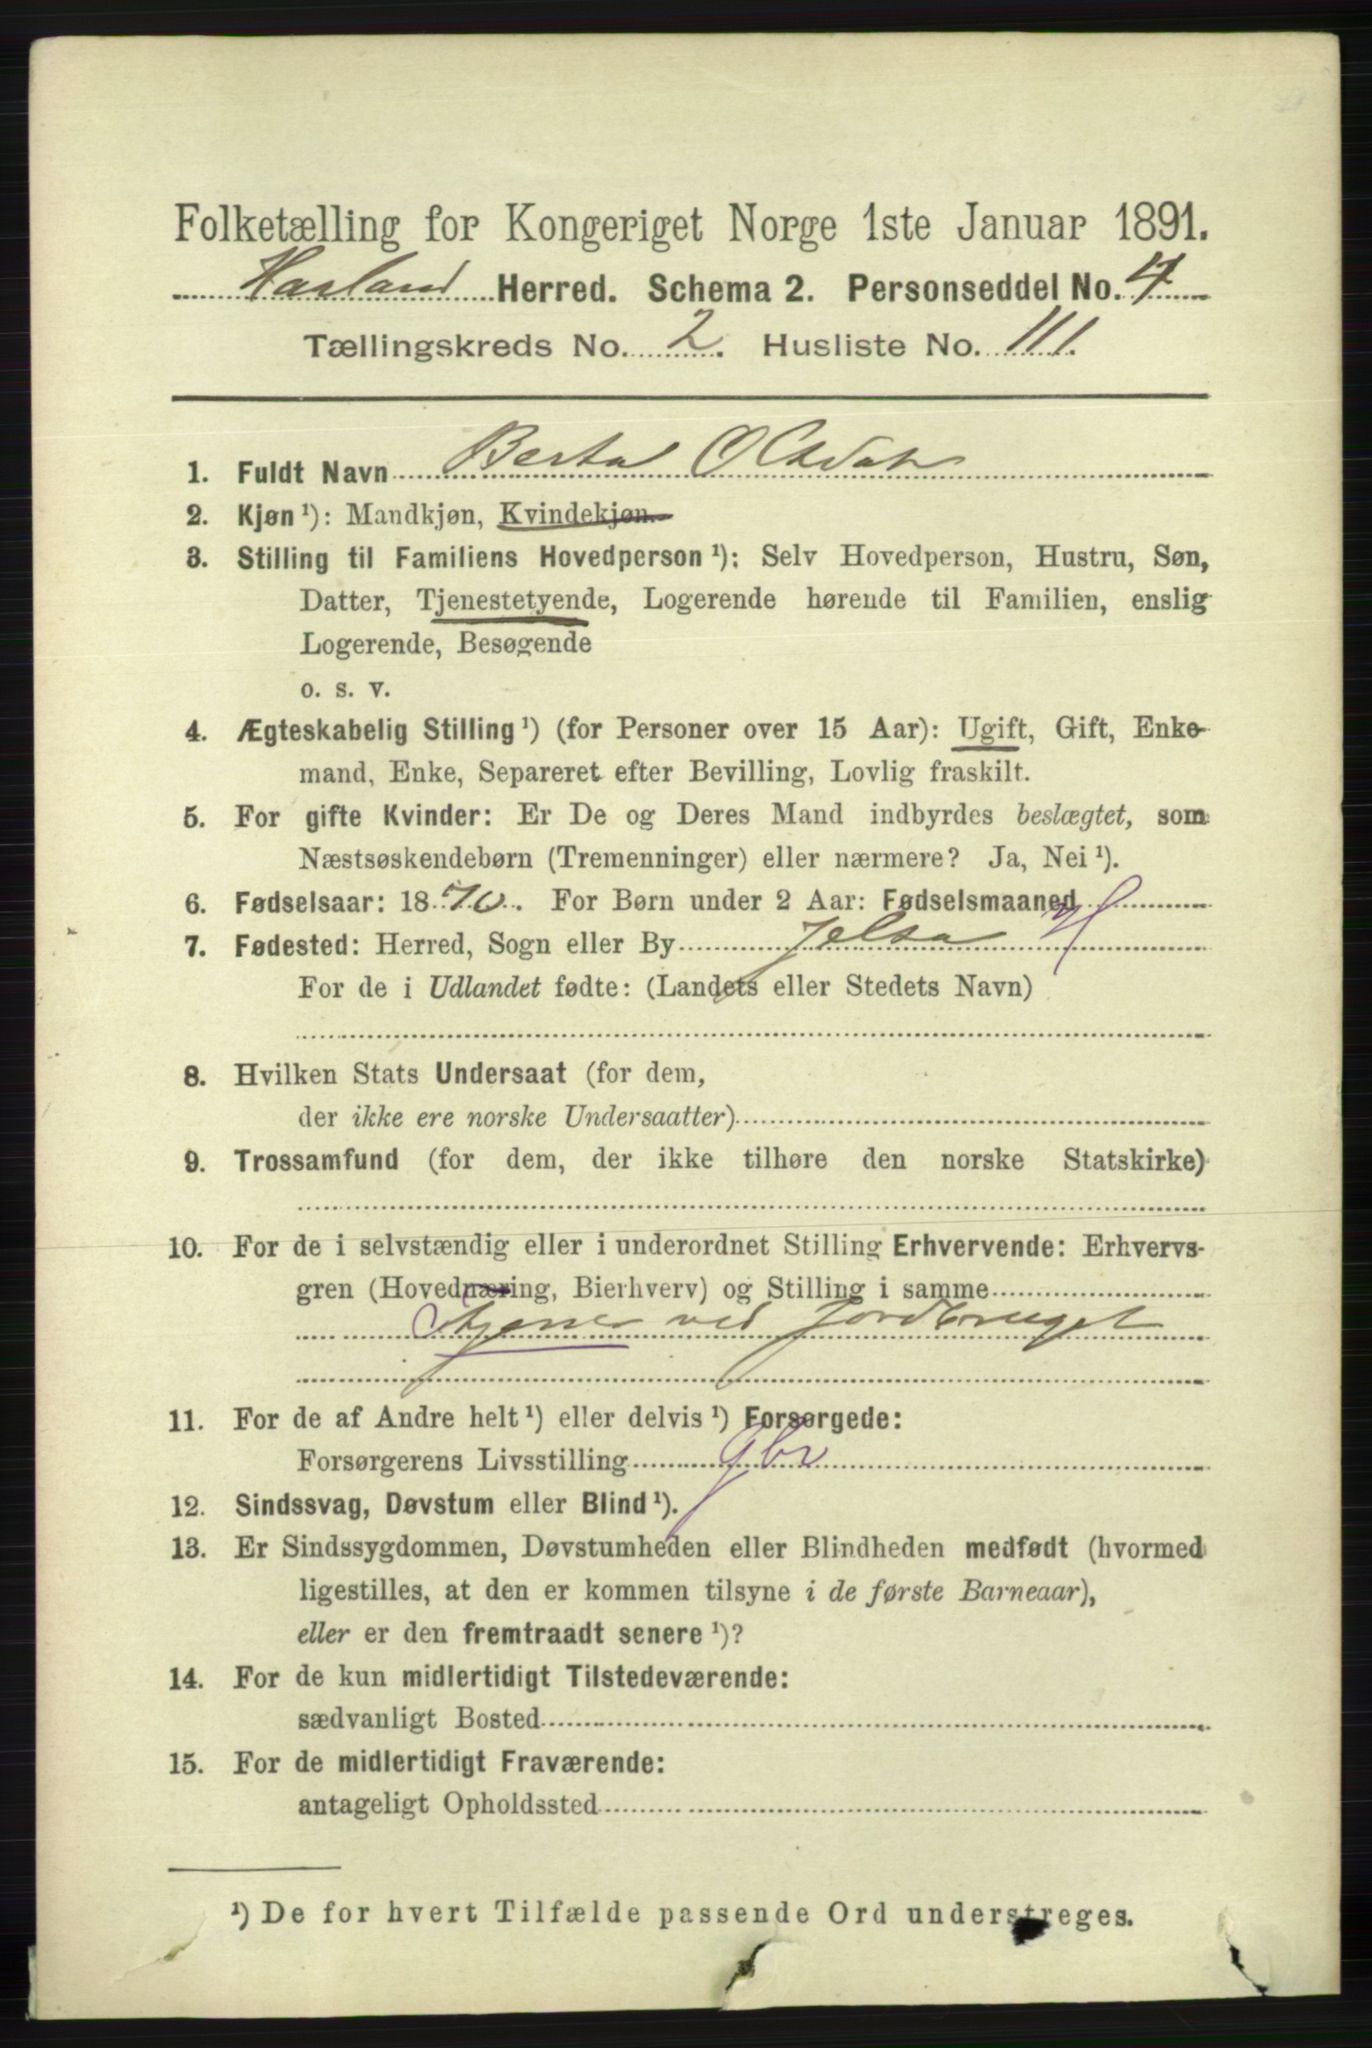 Folketælling for Kongeriget Norge 1ste Januar 1891.
Herred. Schema 2. Personseddel No. 4
Tællingskreds No. 2. Husliste No. 111.
1. Fuldt Navn Berta Olsdatr
2. Kjøn ¹): Mandkjøn, Kvindekjøn.
3. Stilling til Familiens Hovedperson ¹): Selv Hovedperson, Hustru, Søn,
Datter, Tjenestetyende, Logerende hørende til Familien, enslig
Logerende, Besøgende
o. s. v.
4. Ægteskabelig Stilling ¹) (for Personer over 15 Aar): Ugift, Gift, Enke-
mand, Enke, Separeret efter Bevilling, Lovlig fraskilt.
5. For gifte Kvinder: Er De og Deres Mand indbyrdes beslægtet, som
Næstsøskendebørn (Tremenninger) eller nærmere? Ja, Nei ¹).
6. Fødselsaar: 1870. For Børn under 2 Aar: Fødselsmaaned
7. Fødested: Herred, Sogn eller By Jelsa H
For de i Udlandet fødte: (Landets eller Stedets Navn)
8. Hvilken Stats Undersaat (for dem,
der ikke ere norske Undersaatter)
9. Trossamfund (for dem, der ikke tilhøre den norske Statskirke)
10. For de i selvstændig eller i underordnet Stilling Erhvervende: Erhvervs-
gren (Hovednæring, Bierhverv) og Stilling i samme
ved Jordbruget
11. For de af Andre helt ¹) eller delvis ¹) Forsørgede:
Forsørgerens Livsstilling gbr
12. Sindssvag, Døvstum eller Blind ¹).
13. Er Sindssygdommen, Døvstumheden eller Blindheden medfødt (hvormed
ligestilles, at den er kommen tilsyne i de første Barneaar),
eller er den fremtraadt senere ¹)?
14. For de kun midlertidigt Tilstedeværende:
sædvanligt Bosted
15. For de midlertidigt Fraværende:
antageligt Opholdssted
¹) De for hvert Tilfælde passende Ord understreges.